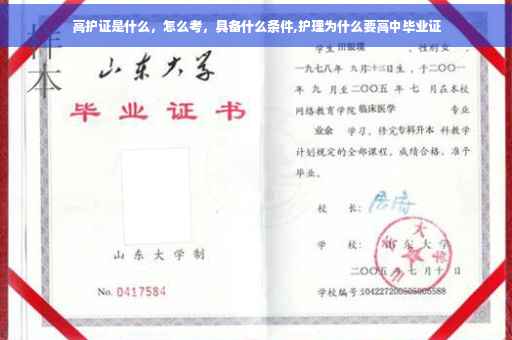 高护证是什么，怎么考，具备什么条件,护理为什么要高中毕业证
样本
山东大学
毕业证书
山东大学制
No. 0417584
学生
性别女，
一九七八年 九月十三日生，于二〇〇一
年 九 月至二〇〇五 年 七 月在本校
网络教育学院 临床医学 专业
业余 学习，修完专科升本科教学
计划规定的全部课程，成绩合格，准予
毕业。
校 长：
学 校：山东大学
二〇〇五年七月十日
学校编号:104227200505005588